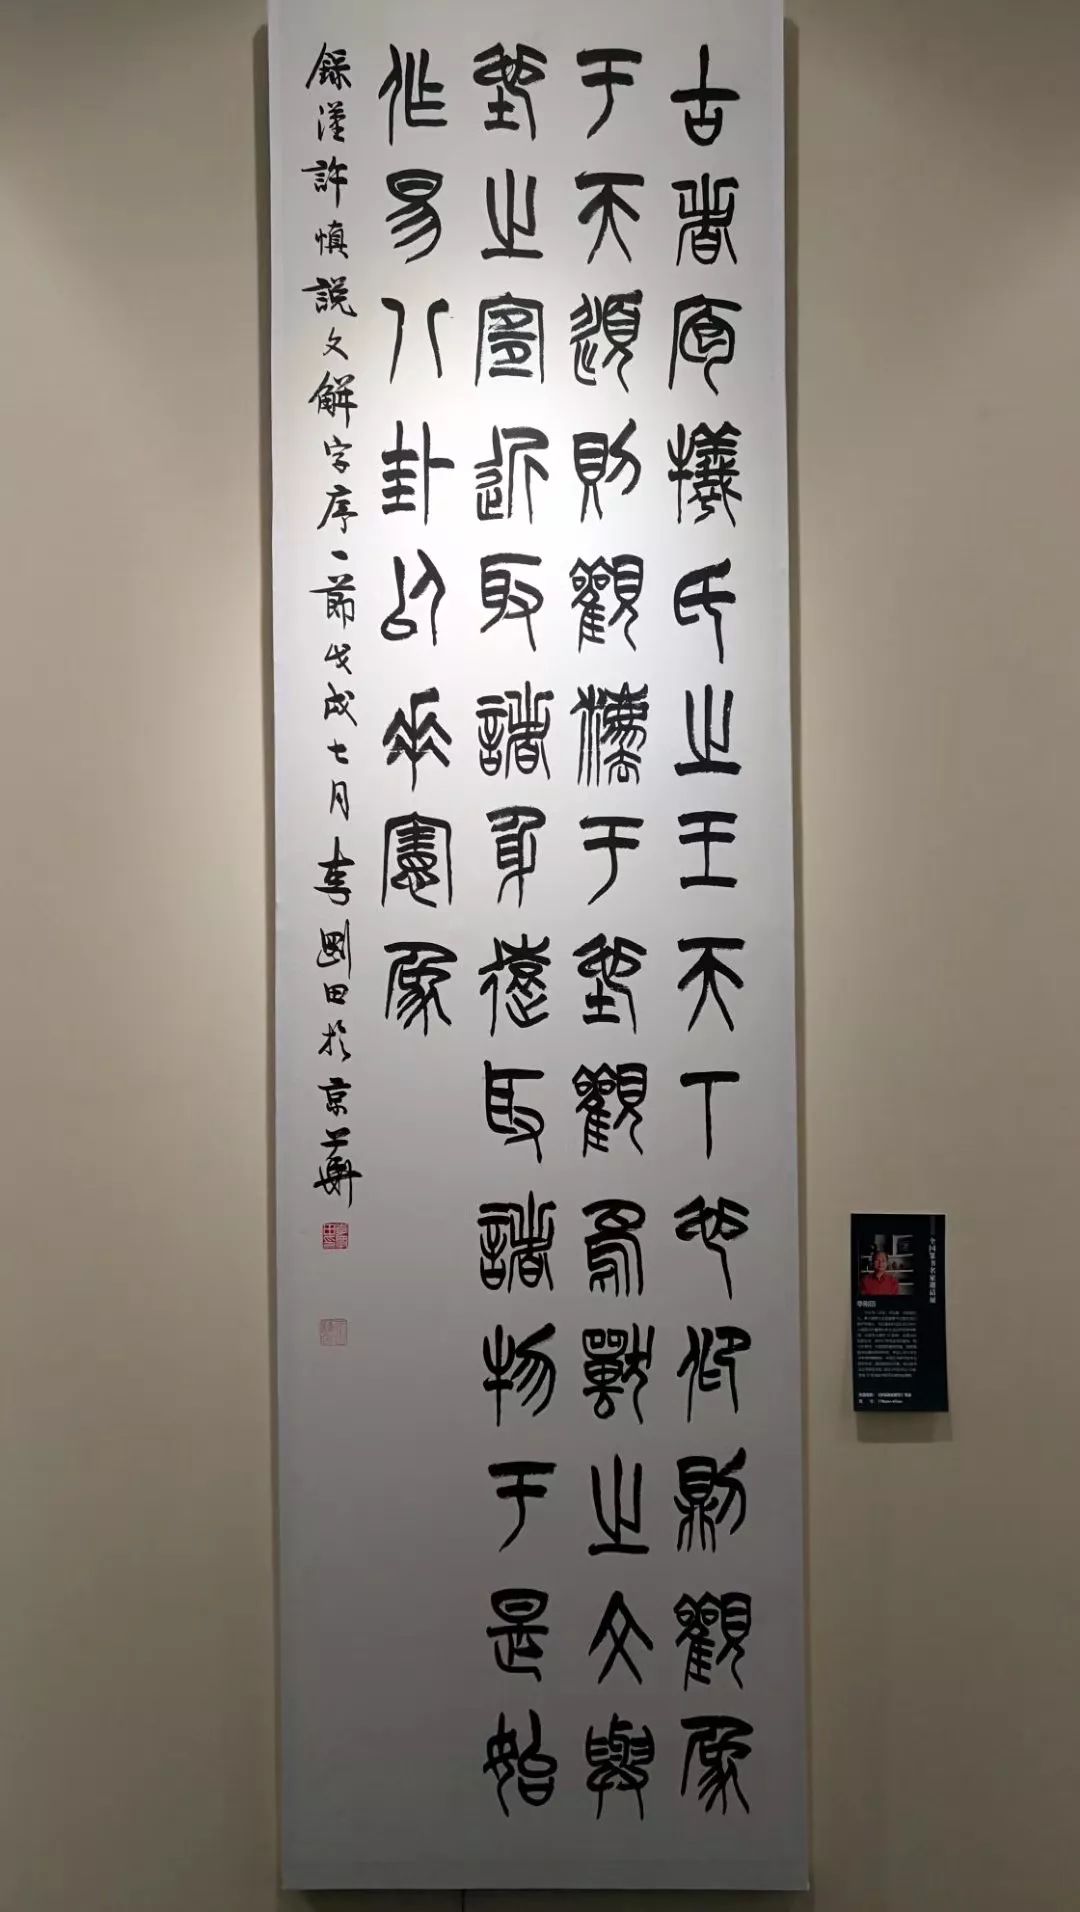 古者庖犧氏之王天下也仰則觀象
于天頫則觀灋于地觀鳥獸之文與
地之宜近取諸身遠取諸物于是始
作易八卦以垂憲象
錄漢許慎説文解字序一節戊戌七月李剛田於京華
李刚田